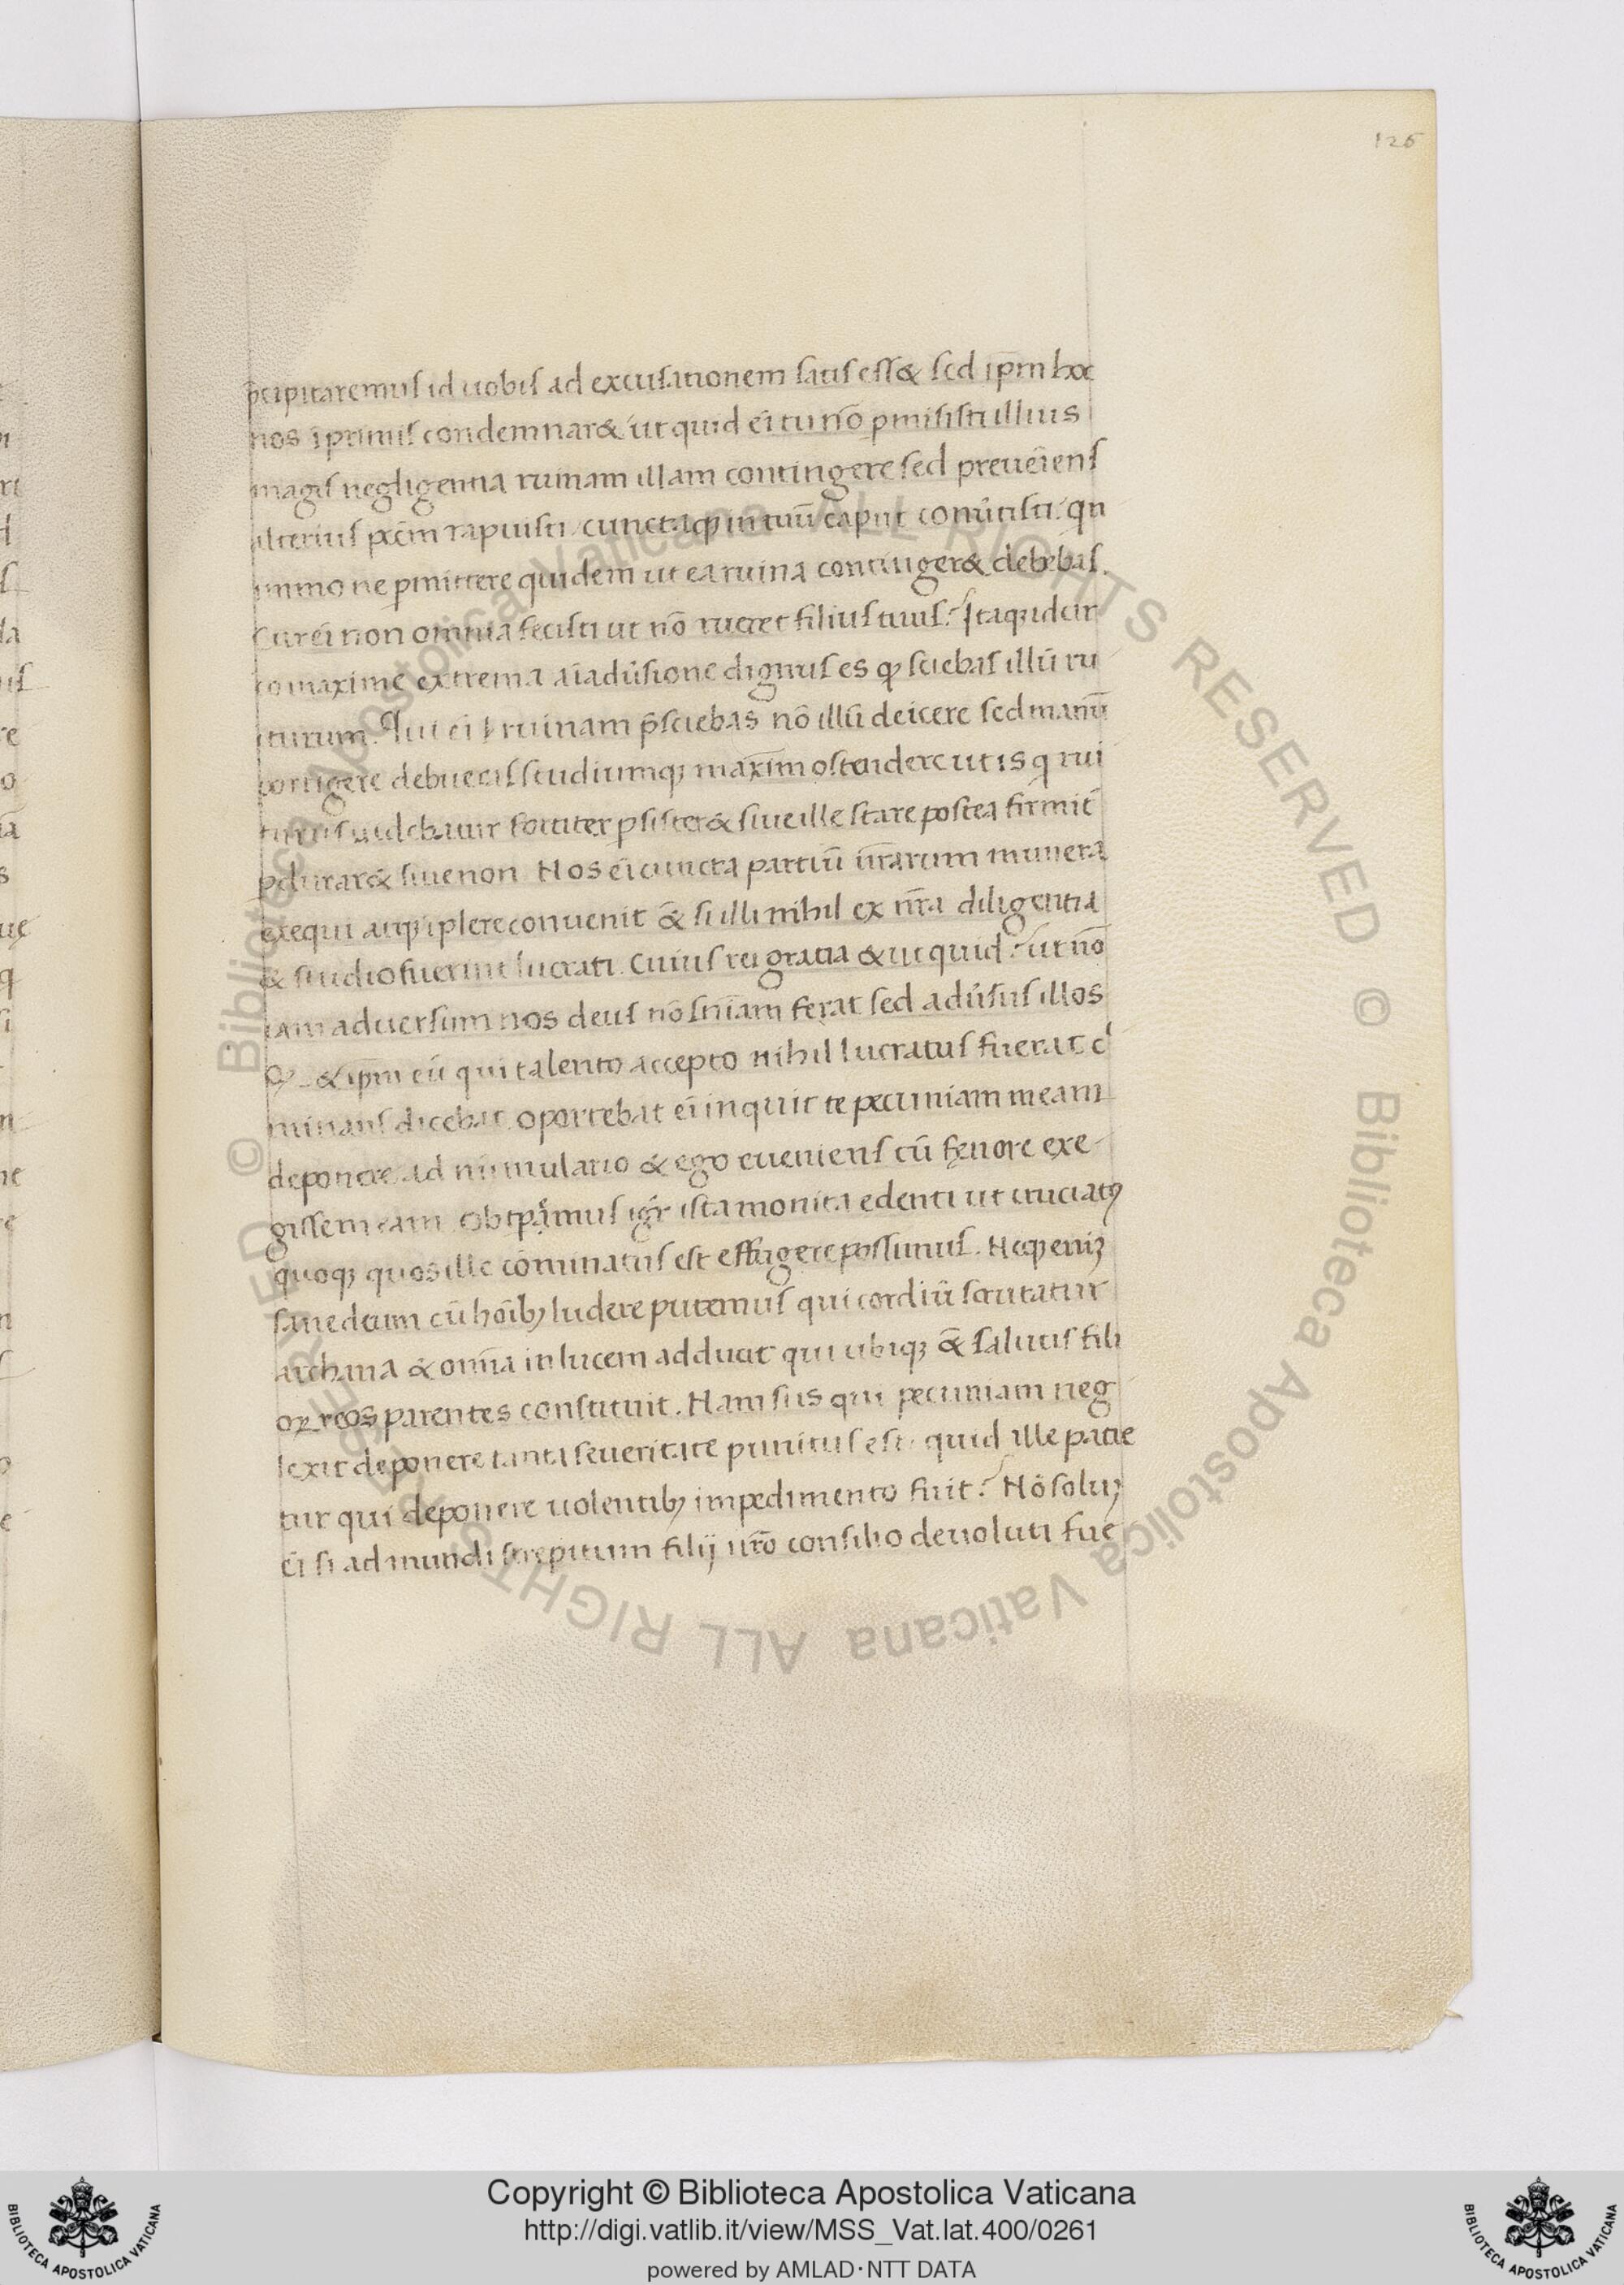 126
p̄cipitaremus id uobis ad excusationem satis ess& sed ip̄m hoc
nos īprimis condemnar& ut quid eī tu nō p̱misisti illius
magis negligentia ruinam illam contingere sed preueīens
alterius pccm̄ rapuisti, cunctaq; in tuū caput comūtisti: qn
immo ne p̱mittere quidem ut ea ruina continger& debebas.
Cur eī non omnia fecisti ut nō rueret filius tuus? Itaq; idcir
co maxime extrema aīaduˀsione dignus es qđ sciebas illū ru
iturum. ei ruinam p̄sciebas nō illū deicere sed manū
porrigere debueras studiumq; maxīm ostendere ut is q rui
turus uidebatur fortiter p̱sister& siue ille stare postea firmit̄
p̱durar& siue non. Nos eī cuncta partiū nr̄arum munera
exequi atq; īplere conuenit & si illi nihil ex nr̄a diligentia
& studio fuerint lucrati. Cuius rei gratia & ut quid? ut nō
iam aduersum nos deus nō sn̄iam ferat sed aduˀsus illos
& ip̄m eū qui talento accepto nihil lucratus fuerat cˀ
minans dicebat. oportebat eī inquit te pecuniam meam
deponere ad nūmulario & ego eueniens cū fęnore exe
gissem eam. Obtp̱amus igr̄ ista monita edenti ut cruciatꝰ
quoq; quos ille cōminatus est effugere possimus. Neq; eniȝ
sane deum cū hoīb; ludere putemus qui cordiū scrutatur
archana & omīa in lucem adducit qui ubiq; & salutis fili
oꝝ reos parentes constituit. Nam si is qui pecuniam neg
lexit deponere tanta seueritate punitus est, quid ille patie
tur qui deponere uolentib; impedimento fuit? Nō soluȝ
eī si ad mundi strepitum filij ur̄o consilio deuoluti fue
Copyright © Biblioteca Apostolica Vaticana
http://digi.vatlib.it/view/MSS_Vat.lat.400/0261
powered by AMLAD·NTT DATA
BIBLIOTECA APOSTOLICA VATICANA
BIBLIOTECA APOSTOLICA VATICANA
© Biblioteca Apostolica Vaticana ALL RIGHTS RESERVED © Biblioteca Apostolica Vaticana ALL RIGHTS RESERVED